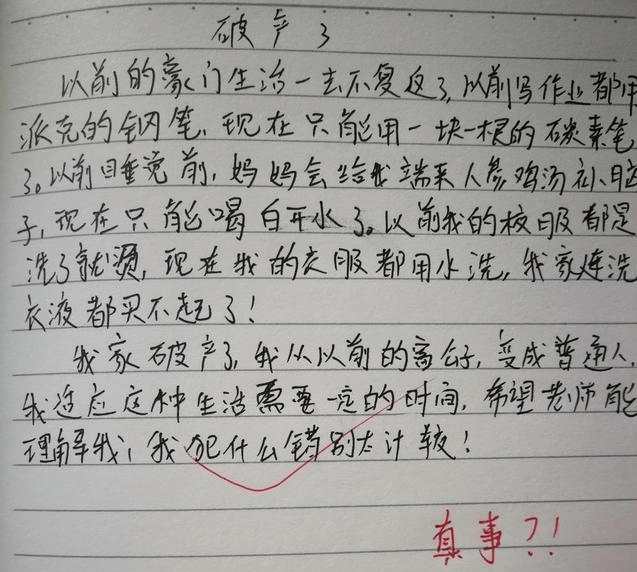 破产了
以前的豪门生活一去不复返了,以前写作业都用
派克的钢笔,现在只能用一块一根的碳素笔
了。以前睡觉前,妈妈会给我端来人参鸡汤补脑
子,现在只能喝白开水了。以前我的校服都是
洗了就烫,现在我的衣服都用水洗,我家连洗
衣液都买不起了!
我家破产了,我从以前的富公子,变成普通人,
我适应这种生活需要一定的时间,希望老师能
理解我,我犯什么错别太计较!
真事?!